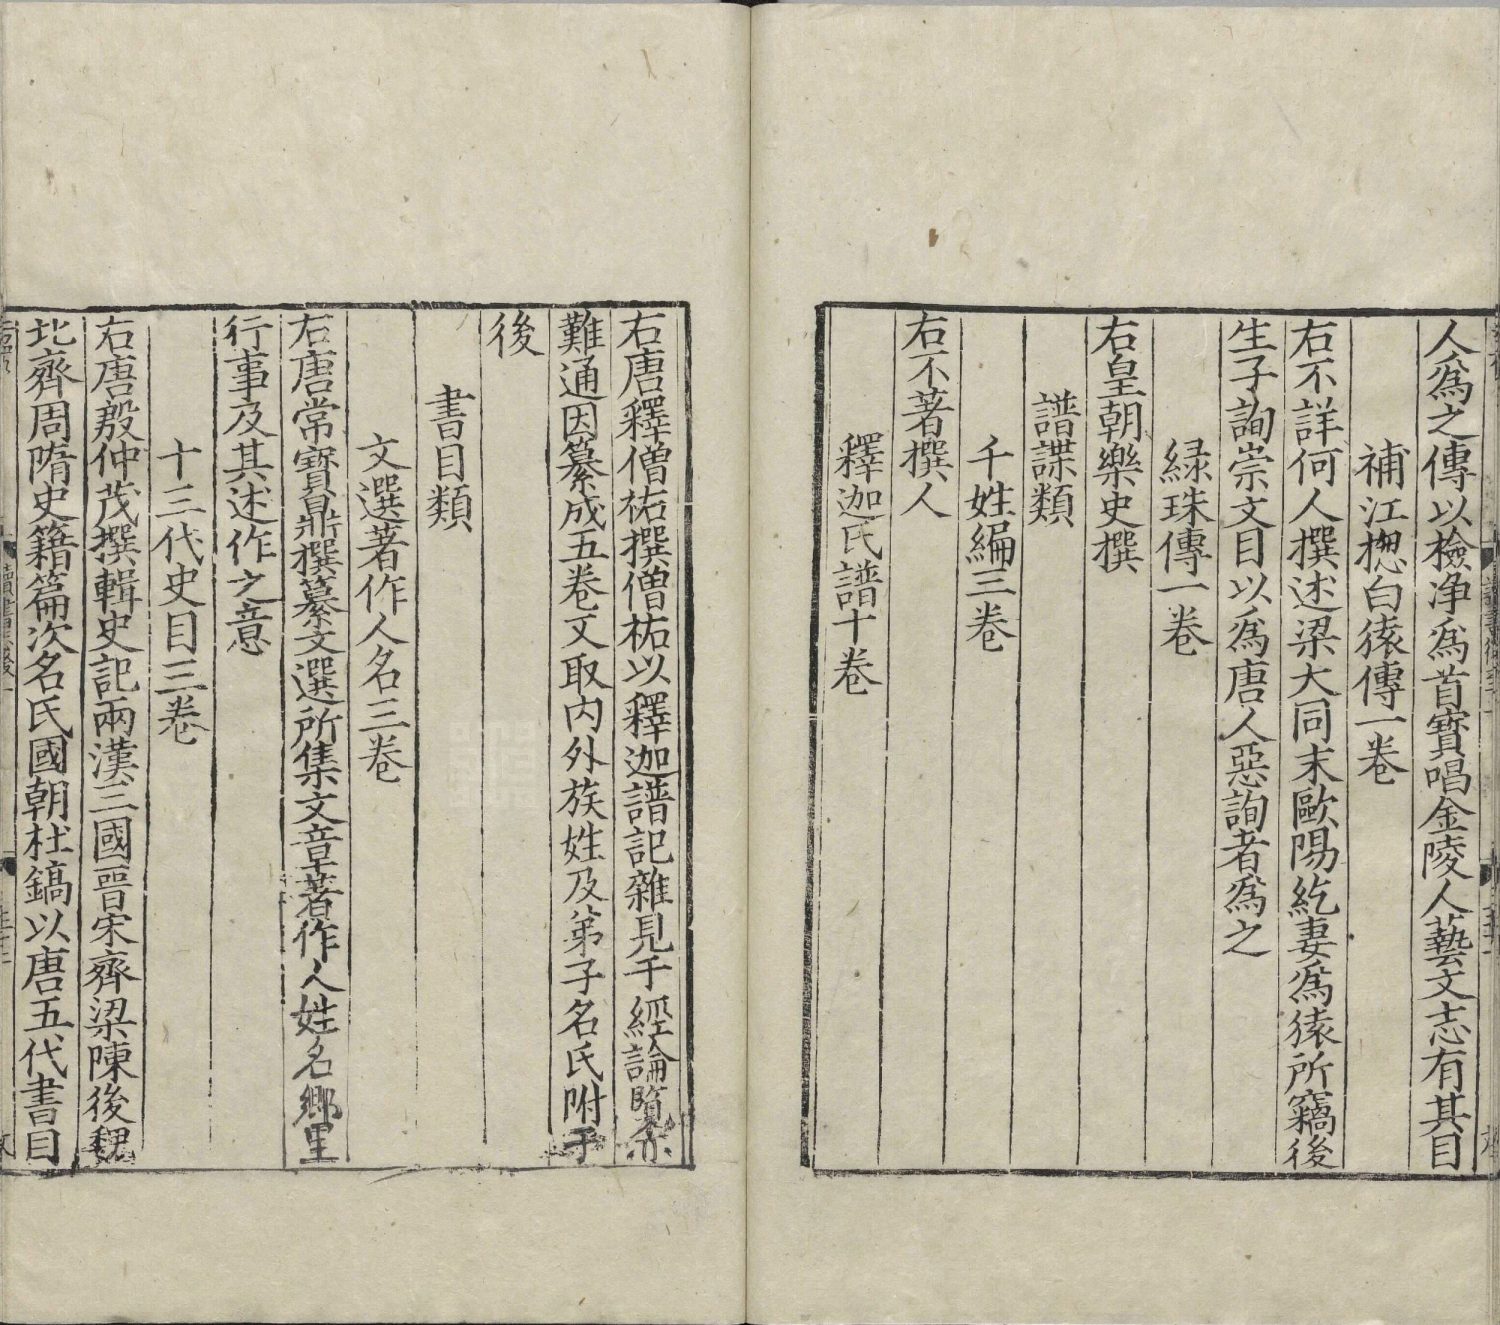 人爲之傳以檢净爲首寶唱金陵人藝文志有其目
補江揔白猿傳一卷
右不詳何人撰述梁大同末歐陽紇妻爲猿所竊後
生子詢崇文目以爲唐人惡詢者爲之
緑珠傳一卷
右皇朝樂史撰
譜諜類
千姓編三卷
右不著撰人
釋迦氏譜十卷
右唐釋僧祐撰僧祐以釋迦譜記雜見于經論覽亦
難通因纂成五卷又取内外族姓及弟子名氏附于
後
書目類
文選著作人名三卷
右唐常寶鼎撰纂文選所集文章著作人姓名鄉里
行事及其述作之意
十三代史目三卷
右唐殷仲茂撰輯史記兩漢三國晉宋齊梁陳後魏
北齊周隋史籍篇次名氏國朝杜鎬以唐五代書目